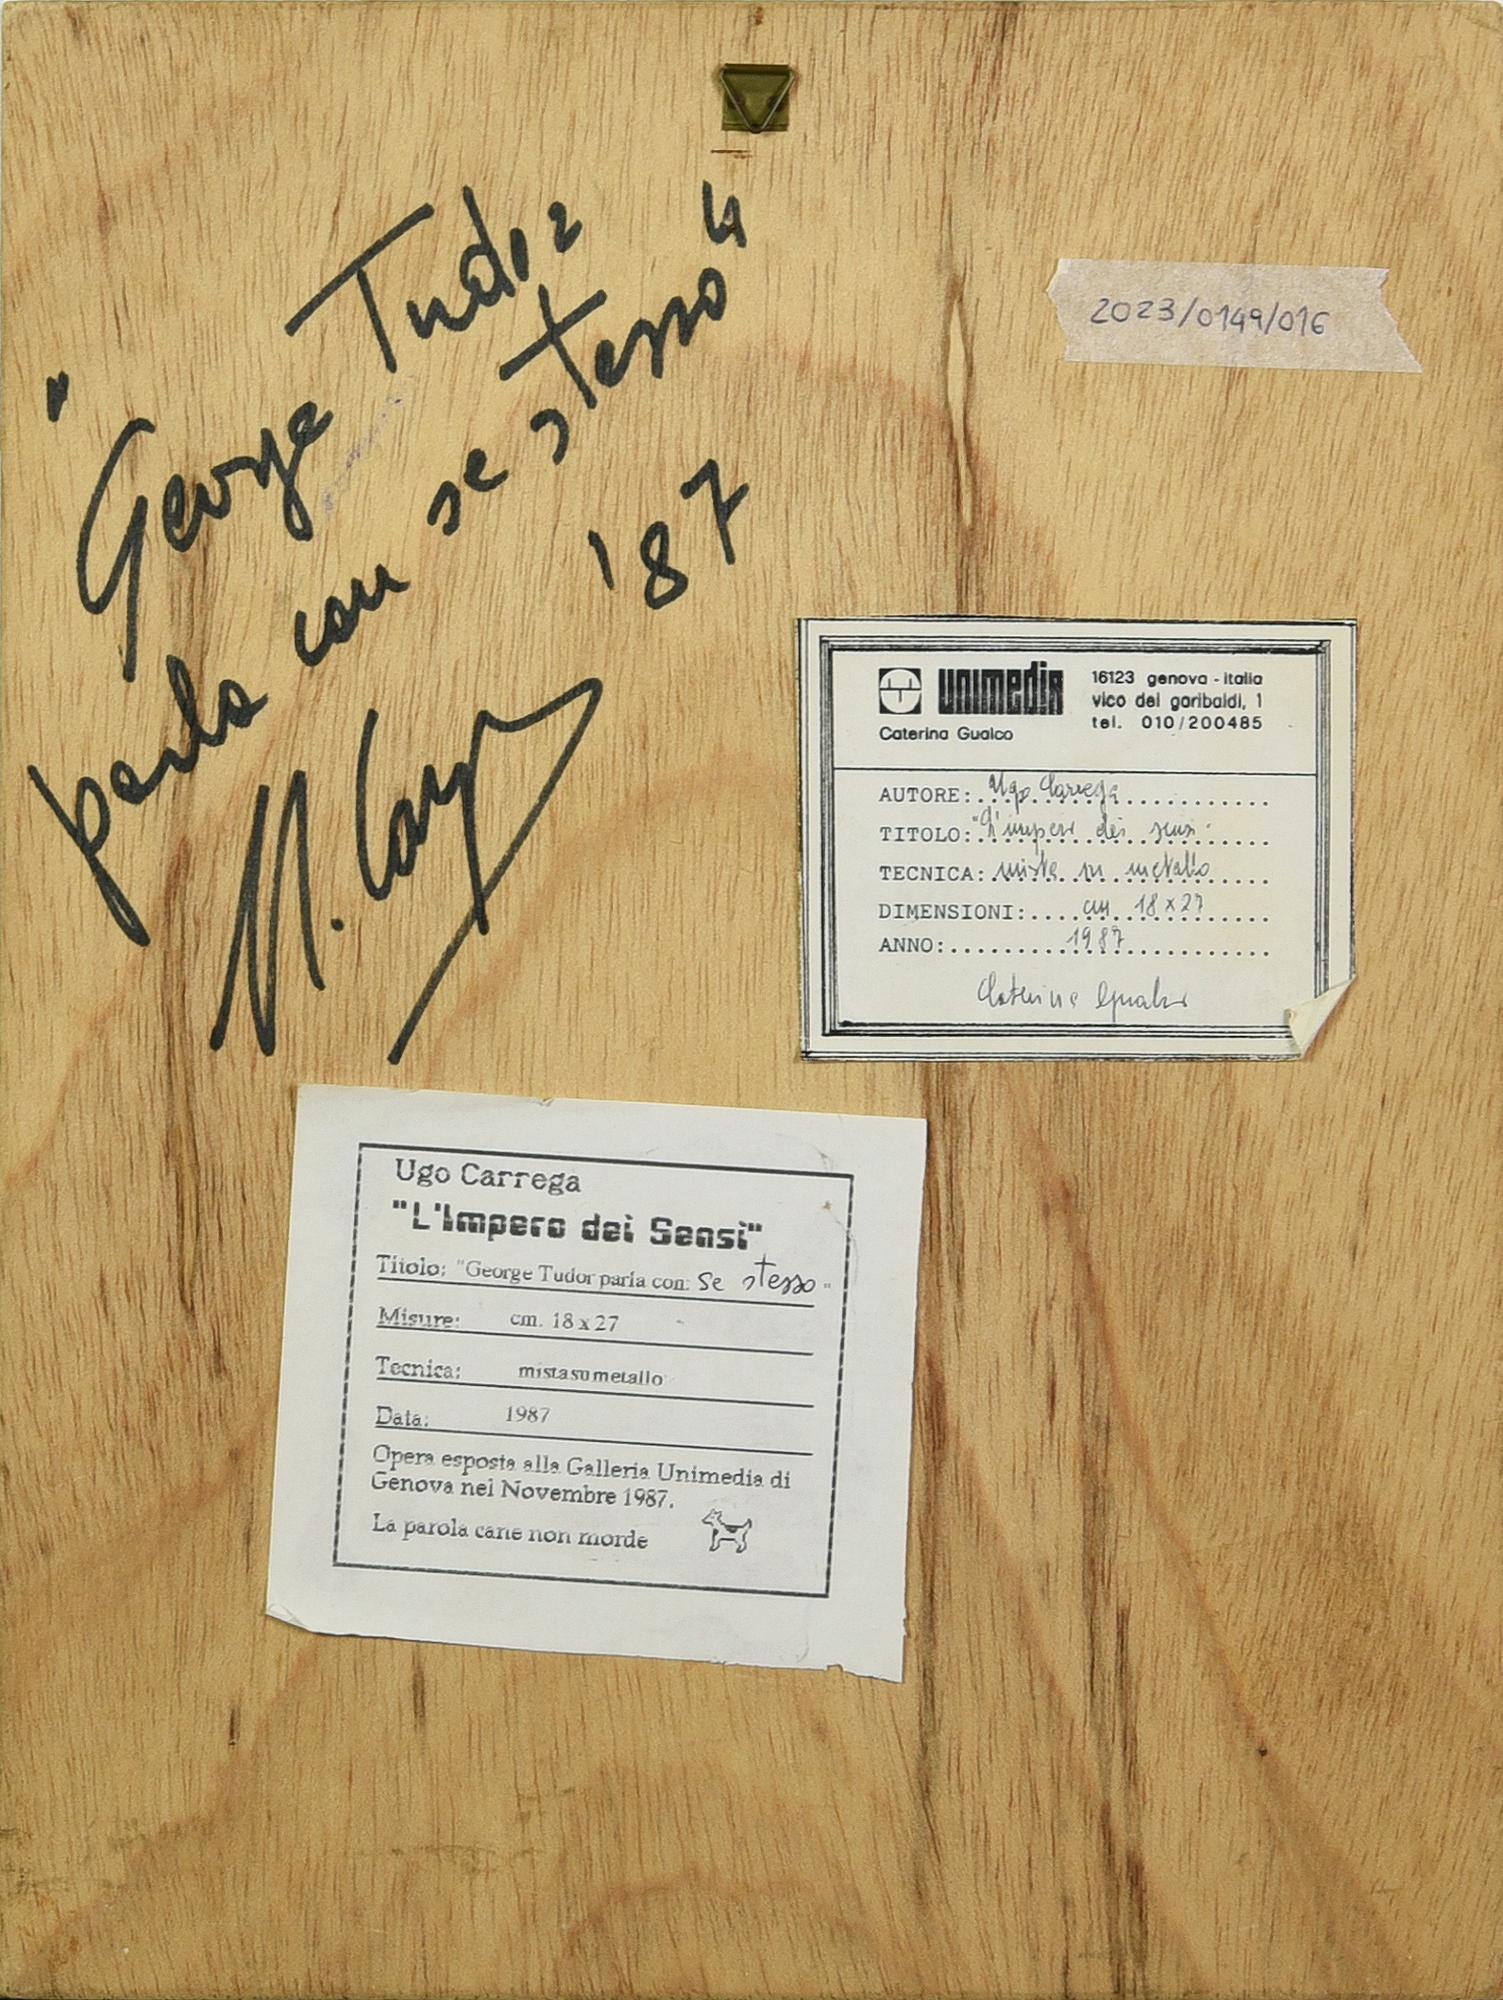 "George Tudor
parla con se stesso"
'87
U. Carrega
2023/0149/016
unimedia
Caterina Gualco
16123 genova - italia
vico dei garibaldi, 1
tel. 010/200485
AUTORE: Ugo Carrega
TITOLO: "L'impero dei sensi"
TECNICA: mista su metallo
DIMENSIONI: cm 18 x 27
ANNO: 1987
Caterina Gualco
Ugo Carrega
"L'Impero dei Sensi"
Titolo: "George Tudor parla con: se stesso"
Misure: cm. 18 x 27
Tecnica: mista su metallo
Data: 1987
Opera esposta alla Galleria Unimedia di
Genova nel Novembre 1987.
La parola cane non morde